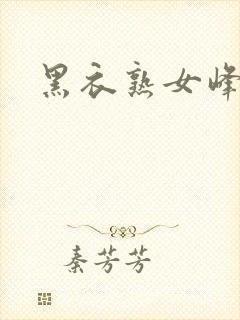 黑衣熟女峰
秦芳芳